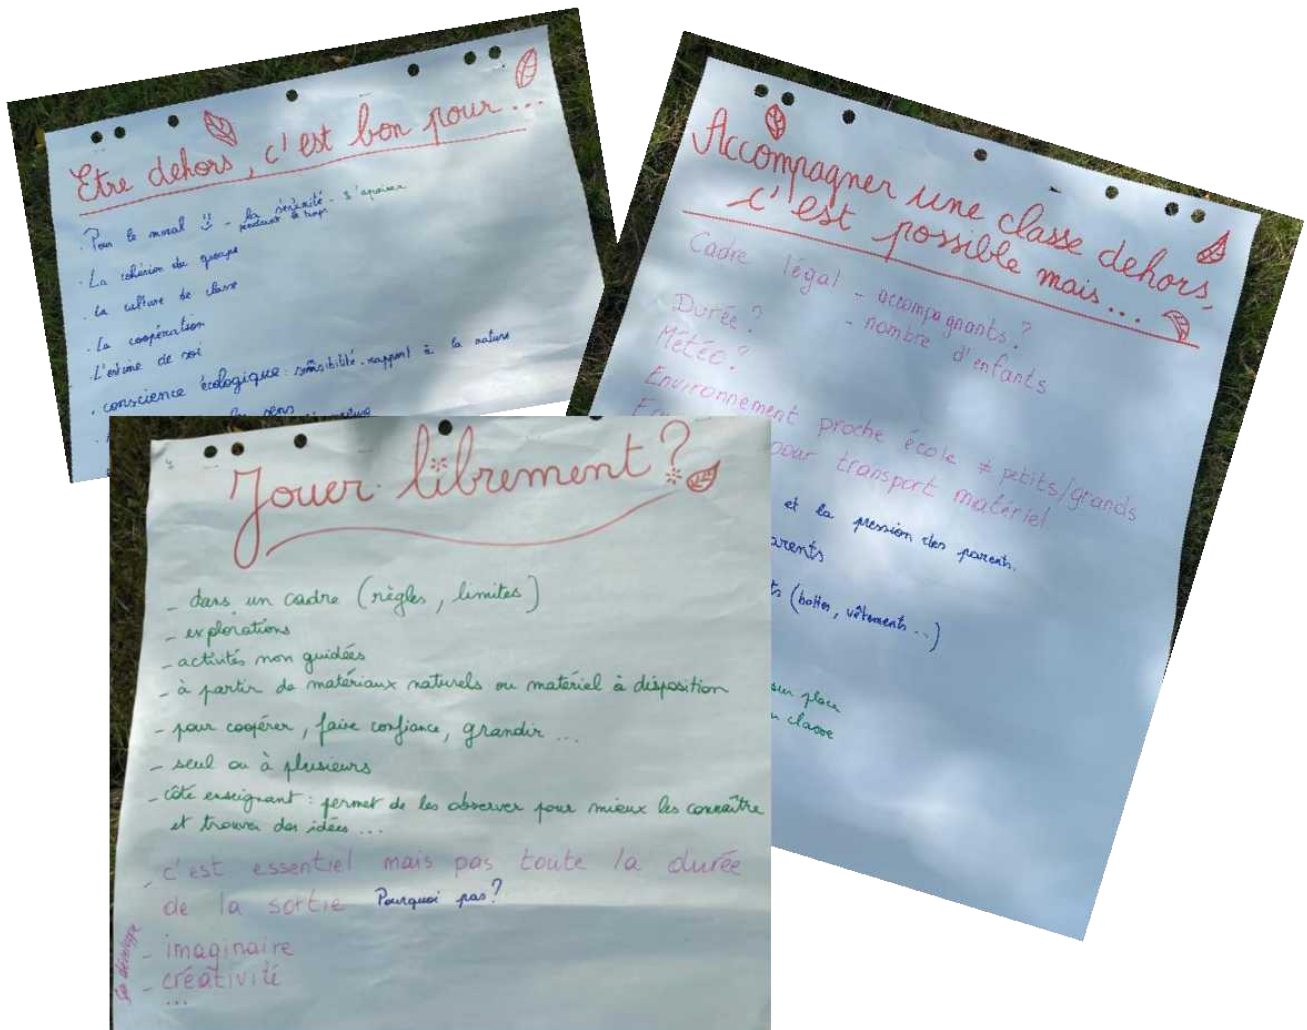 Etre dehors, c'est bon pour...
. Pour le moral - la sérénité - s'apaiser
pendant le temps
. La cohésion de groupe
. La culture de classe
. La coopération
. L'estime de soi
. conscience écologique : sensibilité - rapport à la nature
les sens
Accompagner une classe dehors,
c'est possible mais...
Cadre légal - accompagnants ?
- nombre d'enfants
Durée ?
Météo ?
Environnement proche école ≠ petits/grands
pour transport matériel
et la pression des parents.
(bottes, vêtements ...)
sur place
classe
Jouer librement ?
- dans un cadre (règles, limites)
- explorations
- activités non guidées
- à partir de matériaux naturels ou matériel à disposition
- pour coopérer, faire confiance, grandir ...
- seul ou à plusieurs
- côté enseignant : permet de les observer pour mieux les connaître
et trouver des idées ...
- c'est essentiel mais pas toute la durée
de la sortie Pourquoi pas ?
- imaginaire
- créativité
...